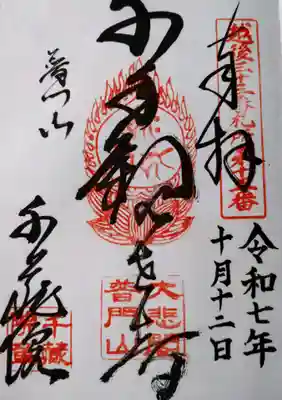 越後三十三番札所第十五番
奉拝
令和七年
十月十二日
千手観世音
大悲閣
普門山
普門山
千蔵院